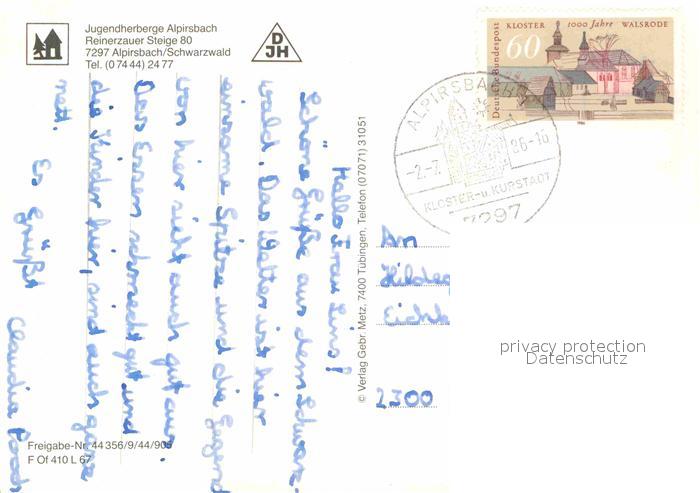 Jugendherberge Alpirsbach
Reinerzauer Steige 80
7297 Alpirsbach/Schwarzwald
Tel. (0 74 44) 24 77
DJH
KLOSTER 1000 Jahre WALSRODE
60
Deutsche Bundespost
ALPIRSBACH
-2.-7. 86-16
KLOSTER-u. KURSTADT
7297
Hallo Frau
Schöne Grüße aus dem Schwarz-
wald. Das Wetter ist hier
einsame Spitze und die Gegend
von hier sieht auch gut aus.
Das Essen schmeckt gut und
die Kinder hier sind auch ganz
nett.
Es grüßt
Claudia
© Verlag Gebr. Metz, 7400 Tübingen, Telefon (07071) 31051
An
Hilde
Eich
2300
privacy protection
Datenschutz
Freigabe-Nr. 44 356/9/44/905
F Of 410 L 67